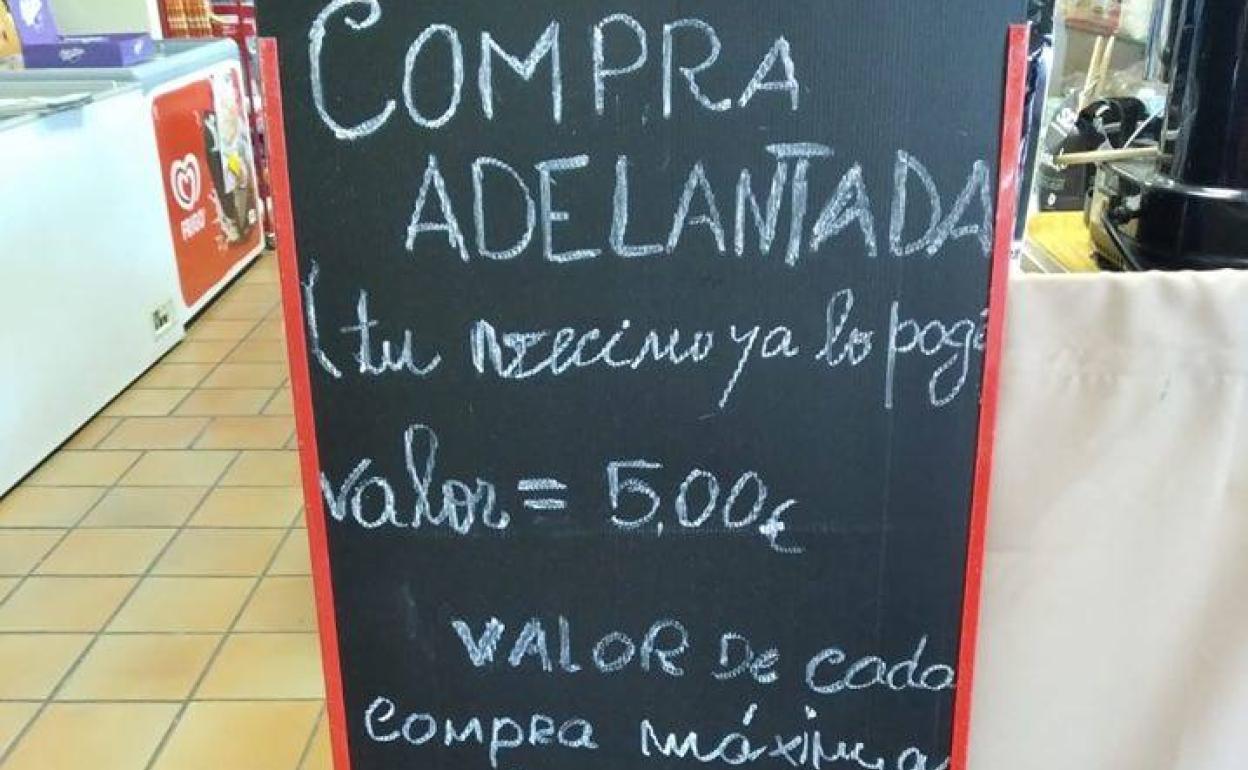 COMPRA
ADELANTADA
(tu vecino ya lo pagó
valor = 5,00€
VALOR DE cada
compra máxima
FRIGO